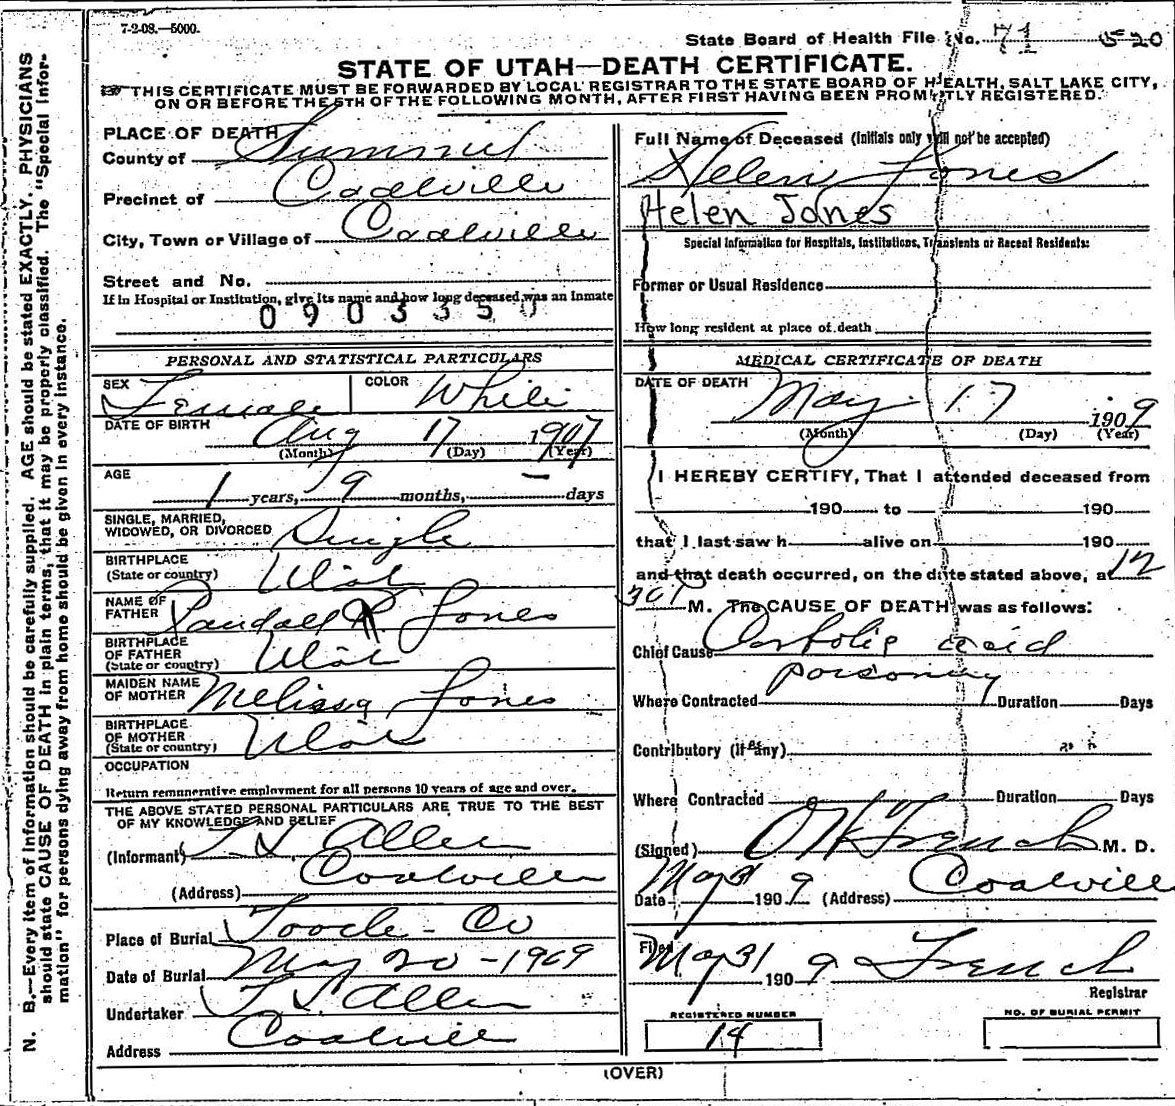 7-2-08.—5000.
State Board of Health File No. 71 520
STATE OF UTAH—DEATH CERTIFICATE.
THIS CERTIFICATE MUST BE FORWARDED BY LOCAL REGISTRAR TO THE STATE BOARD OF HEALTH, SALT LAKE CITY,
ON OR BEFORE THE 5TH OF THE FOLLOWING MONTH, AFTER FIRST HAVING BEEN PROMPTLY REGISTERED.
PLACE OF DEATH
County of Summit
Precinct of Coalville
City, Town or Village of Coalville
Street and No.
If in Hospital or Institution, give its name and how long deceased was an inmate
0903350
PERSONAL AND STATISTICAL PARTICULARS
SEX Female COLOR White
DATE OF BIRTH Aug 17 1907
(Month) (Day) (Year)
AGE
1 years, 9 months, — days
SINGLE, MARRIED,
WIDOWED, OR DIVORCED Single
BIRTHPLACE
(State or country) Utah
NAME OF
FATHER Randall R Jones
BIRTHPLACE
OF FATHER
(State or country) Utah
MAIDEN NAME
OF MOTHER Melissa Jones
BIRTHPLACE
OF MOTHER
(State or country) Utah
OCCUPATION
Return remunerative employment for all persons 10 years of age and over.
THE ABOVE STATED PERSONAL PARTICULARS ARE TRUE TO THE BEST
OF MY KNOWLEDGE AND BELIEF
(Informant) T. L. Allen
(Address) Coalville
Place of Burial Tooele - Co
Date of Burial May 20 - 1909
Undertaker T L Allen
Address Coalville
Full Name of Deceased (Initials only will not be accepted)
Helen Jones
Helen Jones
Special Information for Hospitals, Institutions, Transients or Recent Residents:
Former or Usual Residence
How long resident at place of death
MEDICAL CERTIFICATE OF DEATH
DATE OF DEATH May 17 1909
(Month) (Day) (Year)
I HEREBY CERTIFY, That I attended deceased from
190 to 190
that I last saw h alive on 190
and that death occurred, on the date stated above, at 12
30 P M. The CAUSE OF DEATH was as follows:
Chief Cause Carbolic acid
poisoning
Where Contracted Duration Days
Contributory (If any)
Where Contracted Duration Days
(Signed) O W French M. D.
Date May 31 1909 (Address) Coalville
Filed May 31 1909 French
Registrar
REGISTERED NUMBER
14
NO. OF BURIAL PERMIT
(OVER)
N. B.—Every item of information should be carefully supplied. AGE should be stated EXACTLY. PHYSICIANS
should state CAUSE OF DEATH in plain terms, that it may be properly classified. The "Special Infor-
mation" for persons dying away from home should be given in every instance.